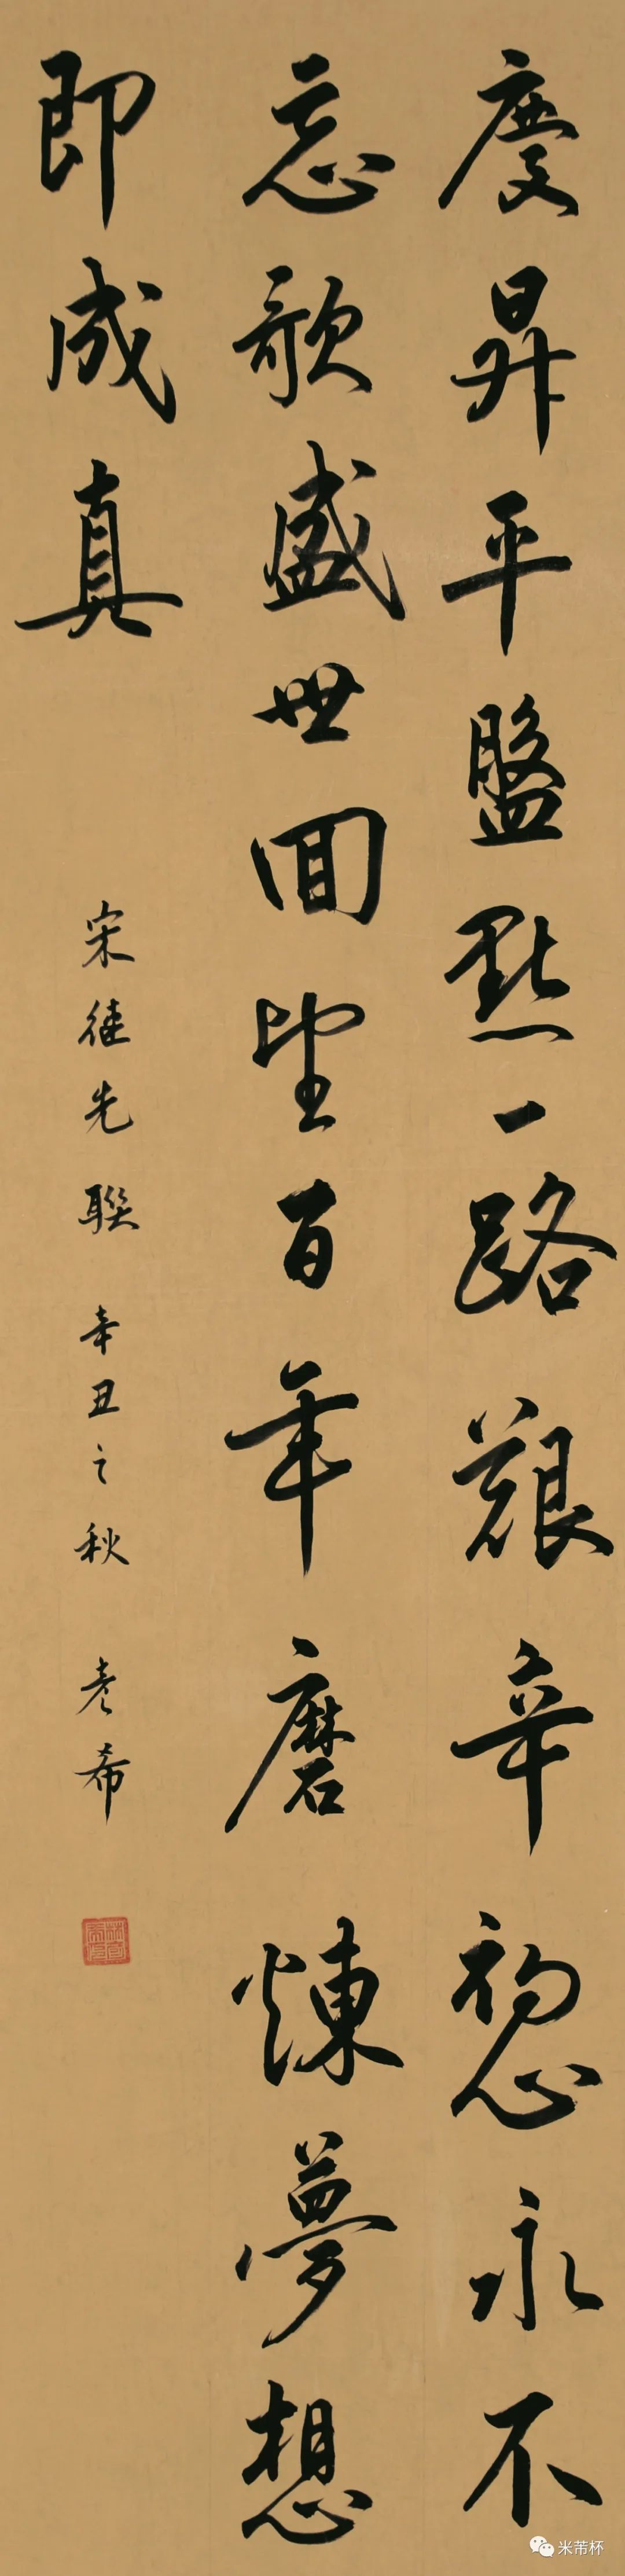 慶昇平盤點一路艱辛初心永不
忘歌盛世回望百年磨煉夢想
即成真
宋徒先聯 辛丑之秋 老希
米芾杯